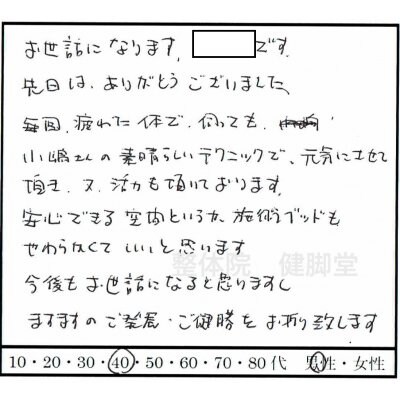 お世話になります。です。
先日は、ありがとうございました、
毎回、疲れた体で、伺っても、
小嶋さんの素晴らしいテクニックで、元気にさせて
頂き、又、活力も頂いております。
安心できる空間というか、施術ベッドも
やわらかくていいと思います
今後もお世話になると思いますし
ますますのご発展・ご健勝をお祈り致します
整体院 健脚堂
10・20・30・40・50・60・70・80代 男性・女性